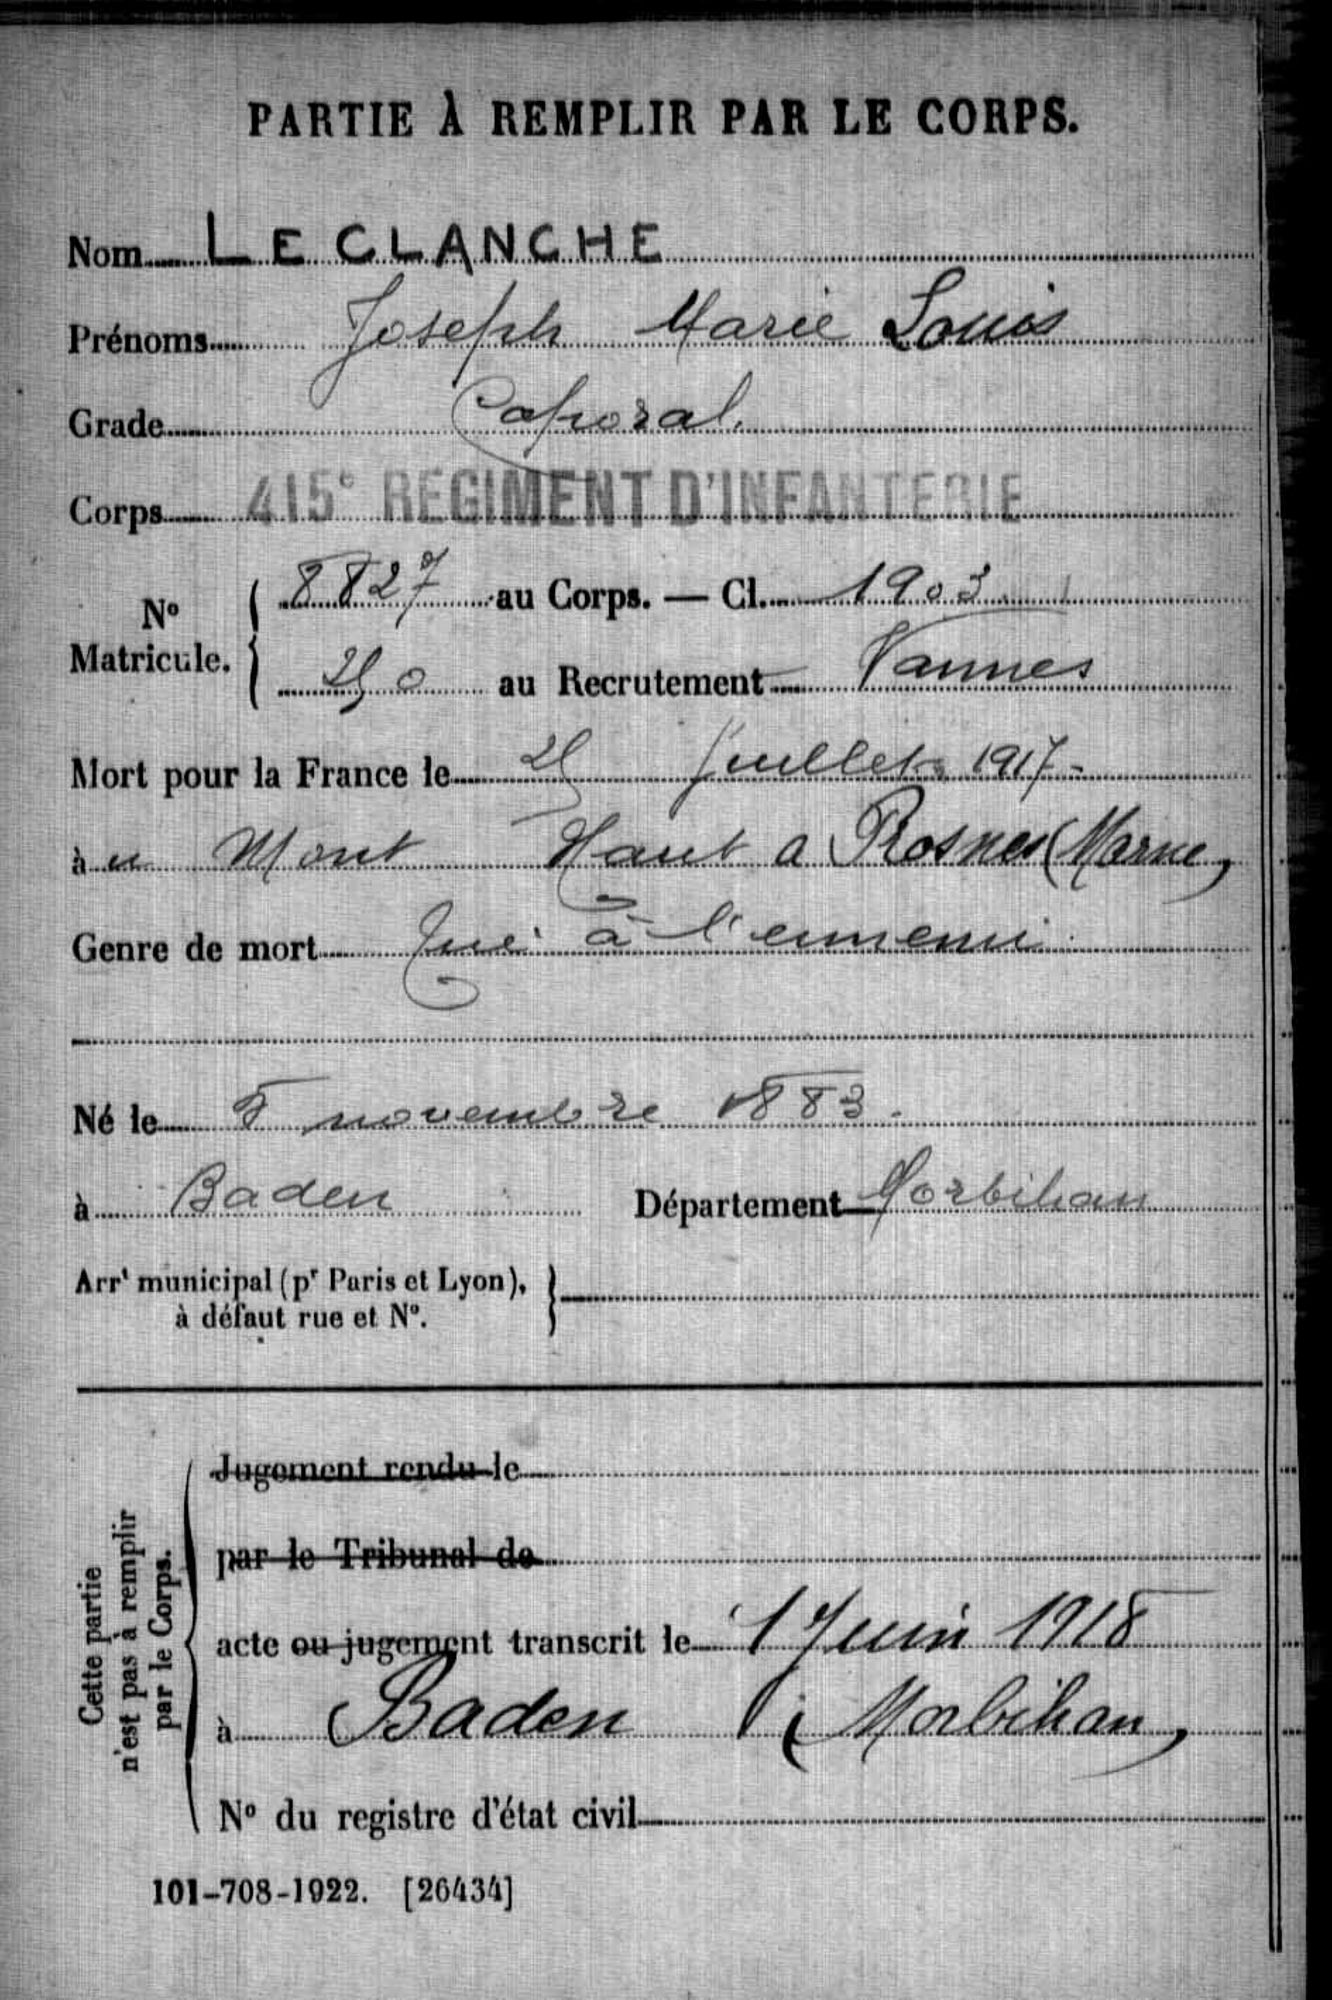 PARTIE À REMPLIR PAR LE CORPS.
Nom LE CLANCHE
Prénoms Joseph Marie Louis
Grade Caporal.
Corps 415e REGIMENT D'INFANTERIE
No Matricule. { 8827 au Corps. — Cl. 1903
250 au Recrutement Vannes
Mort pour la France le 25 Juillet 1917-
à u Mont Haut a Prosnes (Marne)
Genre de mort Tué à l'ennemi
Né le 5 novembre 1883.
à Baden Département Morbihan
Arrt municipal (pr Paris et Lyon),
à défaut rue et No.
Cette partie
n'est pas à remplir
par le Corps.
Jugement rendu le
par le Tribunal de
acte ou jugement transcrit le 1 Juin 1918
à Baden (Morbihan)
No du registre d'état civil
101-708-1922. [26434]